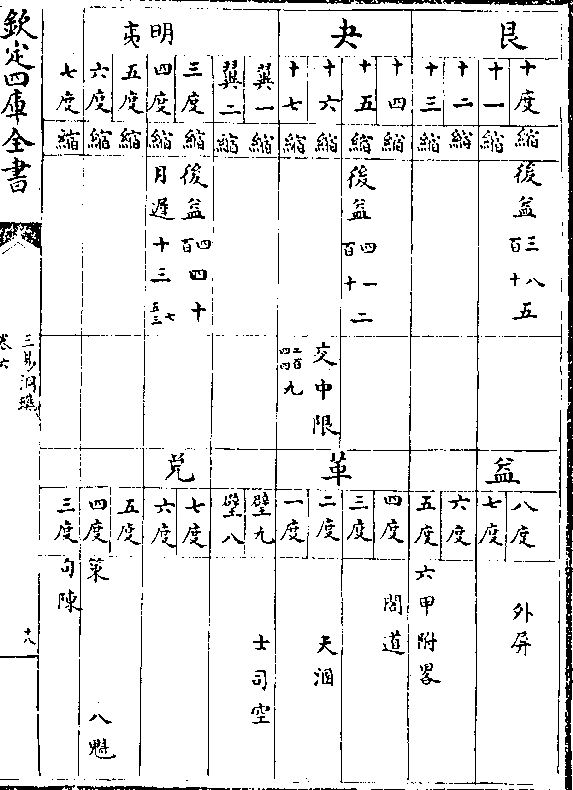 艮 夬 明夷
十度 十一 十二 十三 十四 十五 十六 十七 翼一 翼二 三度 四度 五度 六度 七度
縮 縮 縮 縮 縮 縮 縮 縮 縮 縮 縮 縮 縮 縮 縮
後益三百八十五
後益四百一十二
後益四百四十
月遲十三
交中限
九
益 革 兌
八度 七度 六度 五度 四度 三度 二度 一度 壁九 壁八 七度 六度 五度 四度 三度
外屏
六甲附畧
閣道
天溷
士司空
策
八魁
勾陳
欽定四庫全書
三易洞璣
卷六
十八